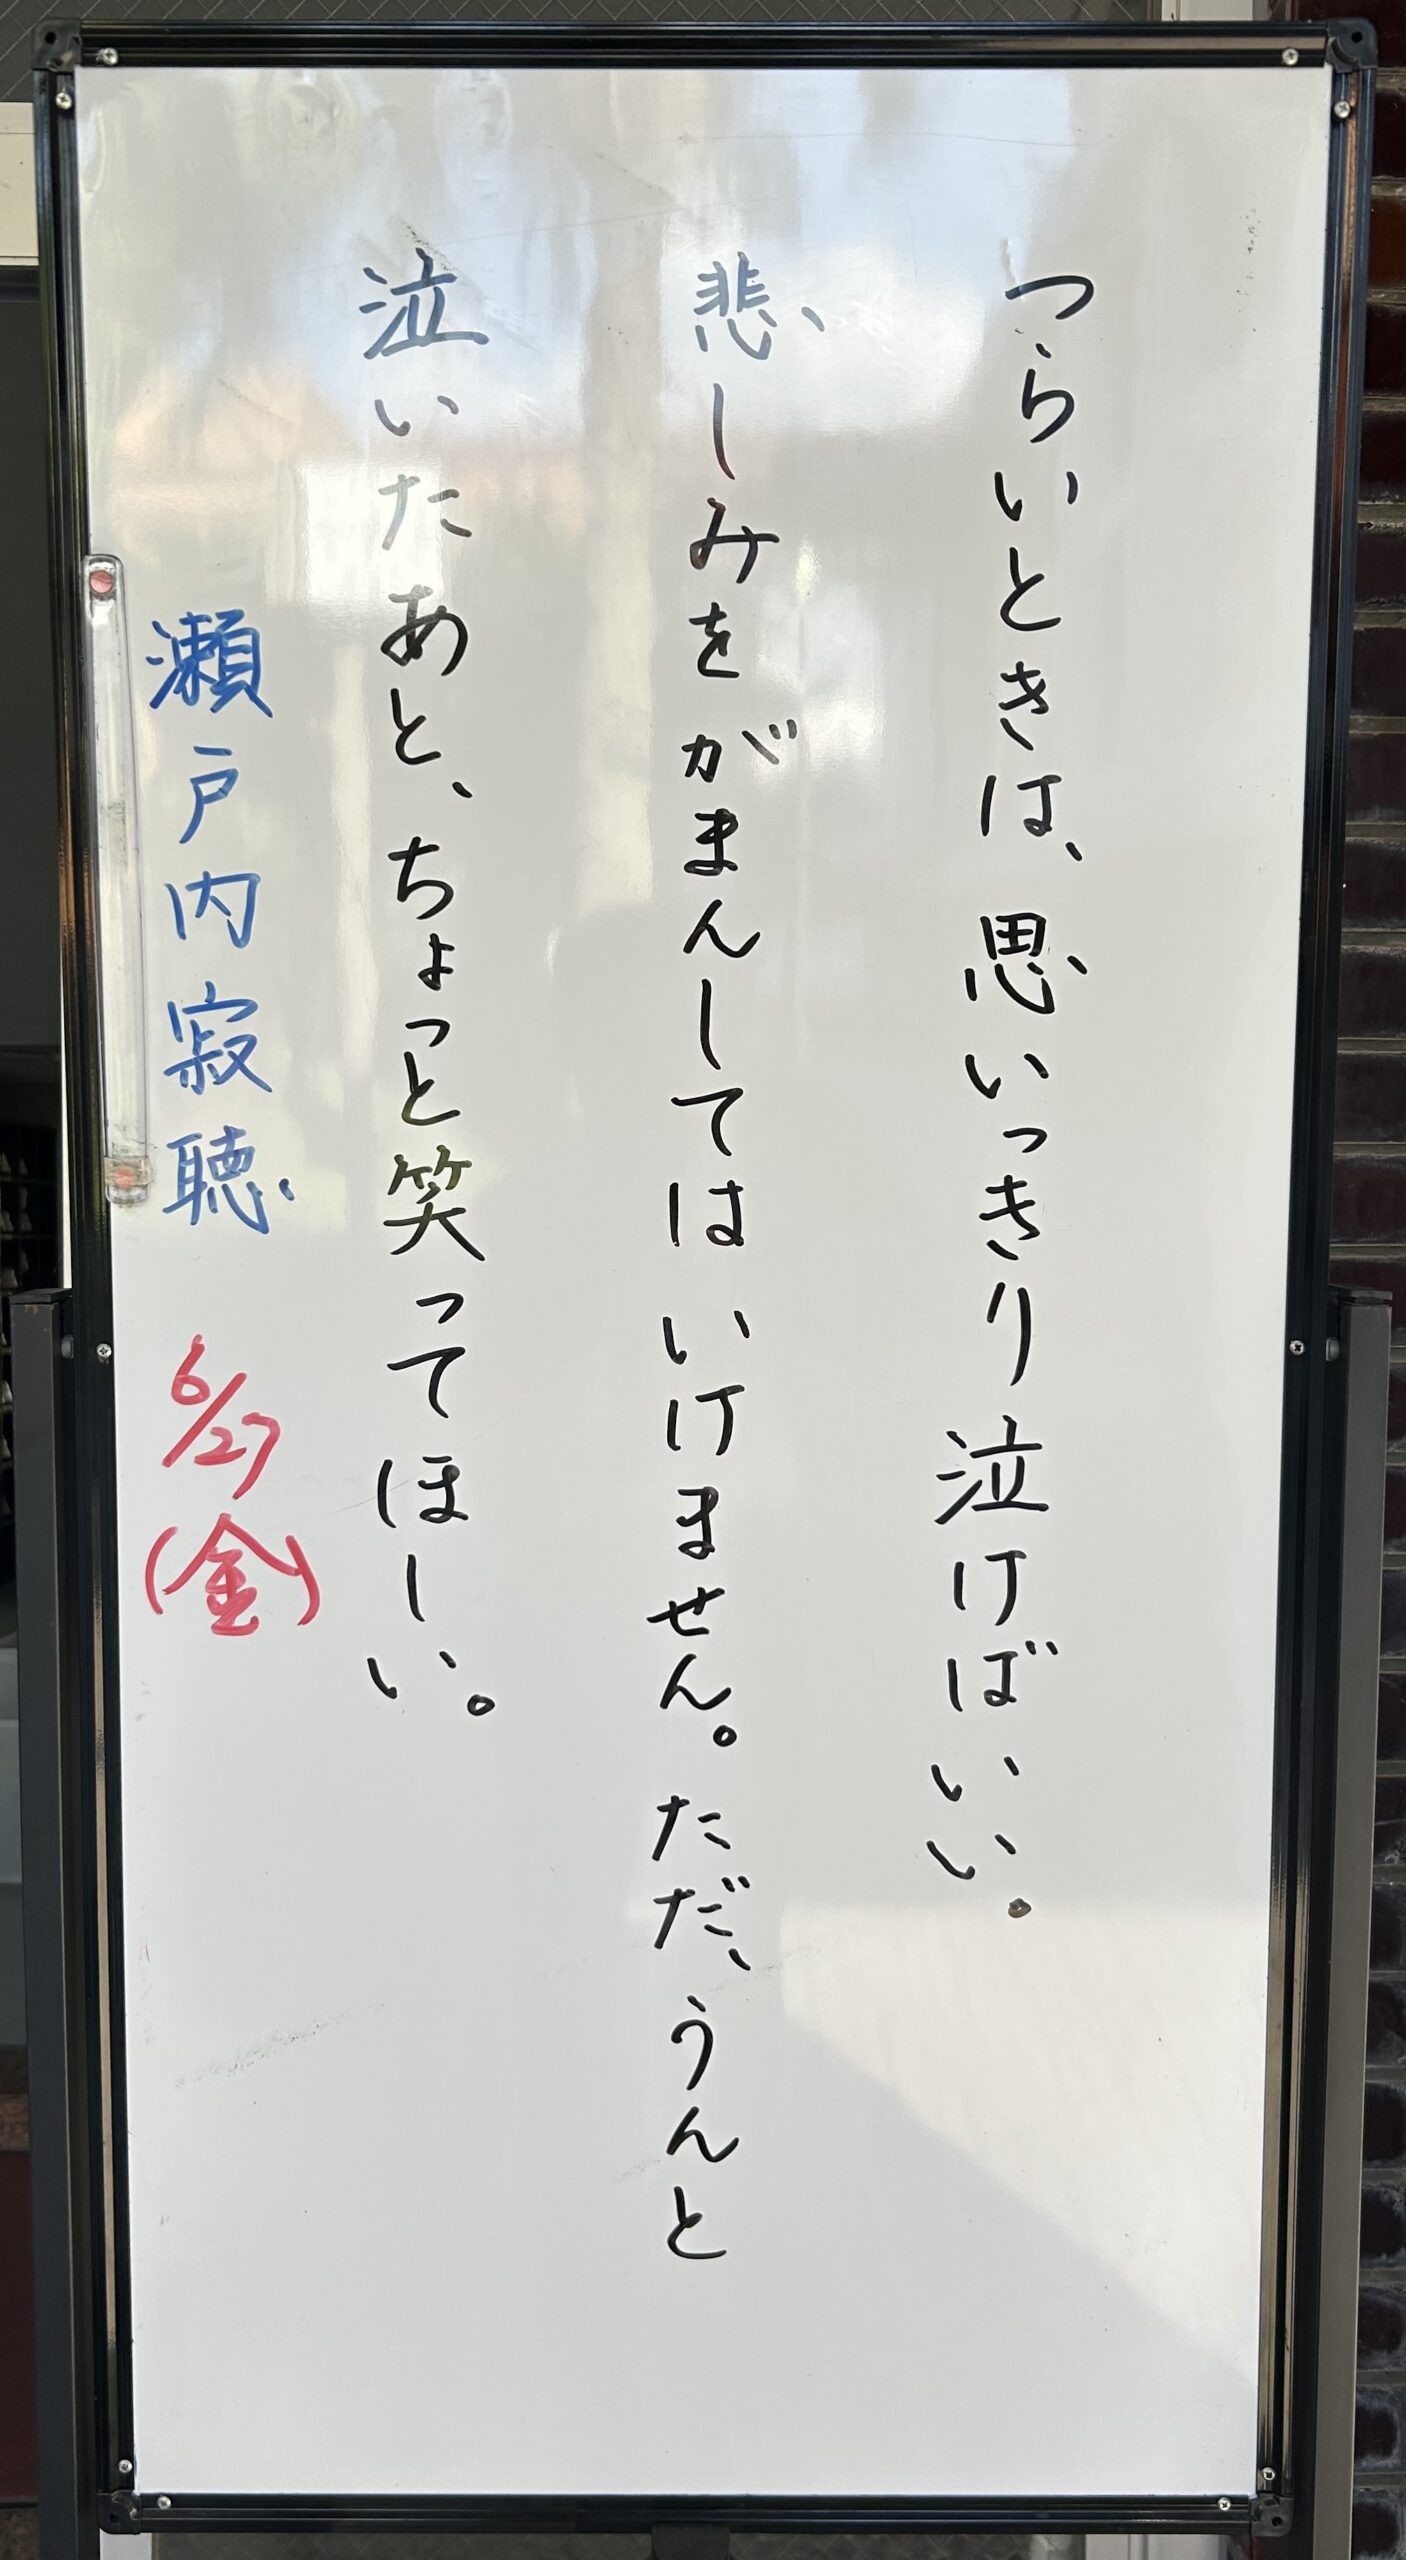 つらいときは、思いっきり泣けばいい。
悲しみをがまんしてはいけません。ただ、うんと
泣いたあと、ちょっと笑ってほしい。
瀬戸内寂聴 6/27(金)